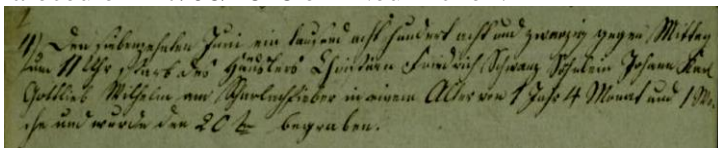 11) Den siebenzehnten Juni ein tausend acht hundert acht und zwanzig gegen Mittag
um 11 Uhr, starb des Häuslers Christian Friedrich Schwarz Söhnlein Johann Karl
Gottlieb Wilhelm am Scharlachfieber in einem Alter von 1 Jahr 4 Monat und 1 Wo-
che und wurde den 20 begraben.